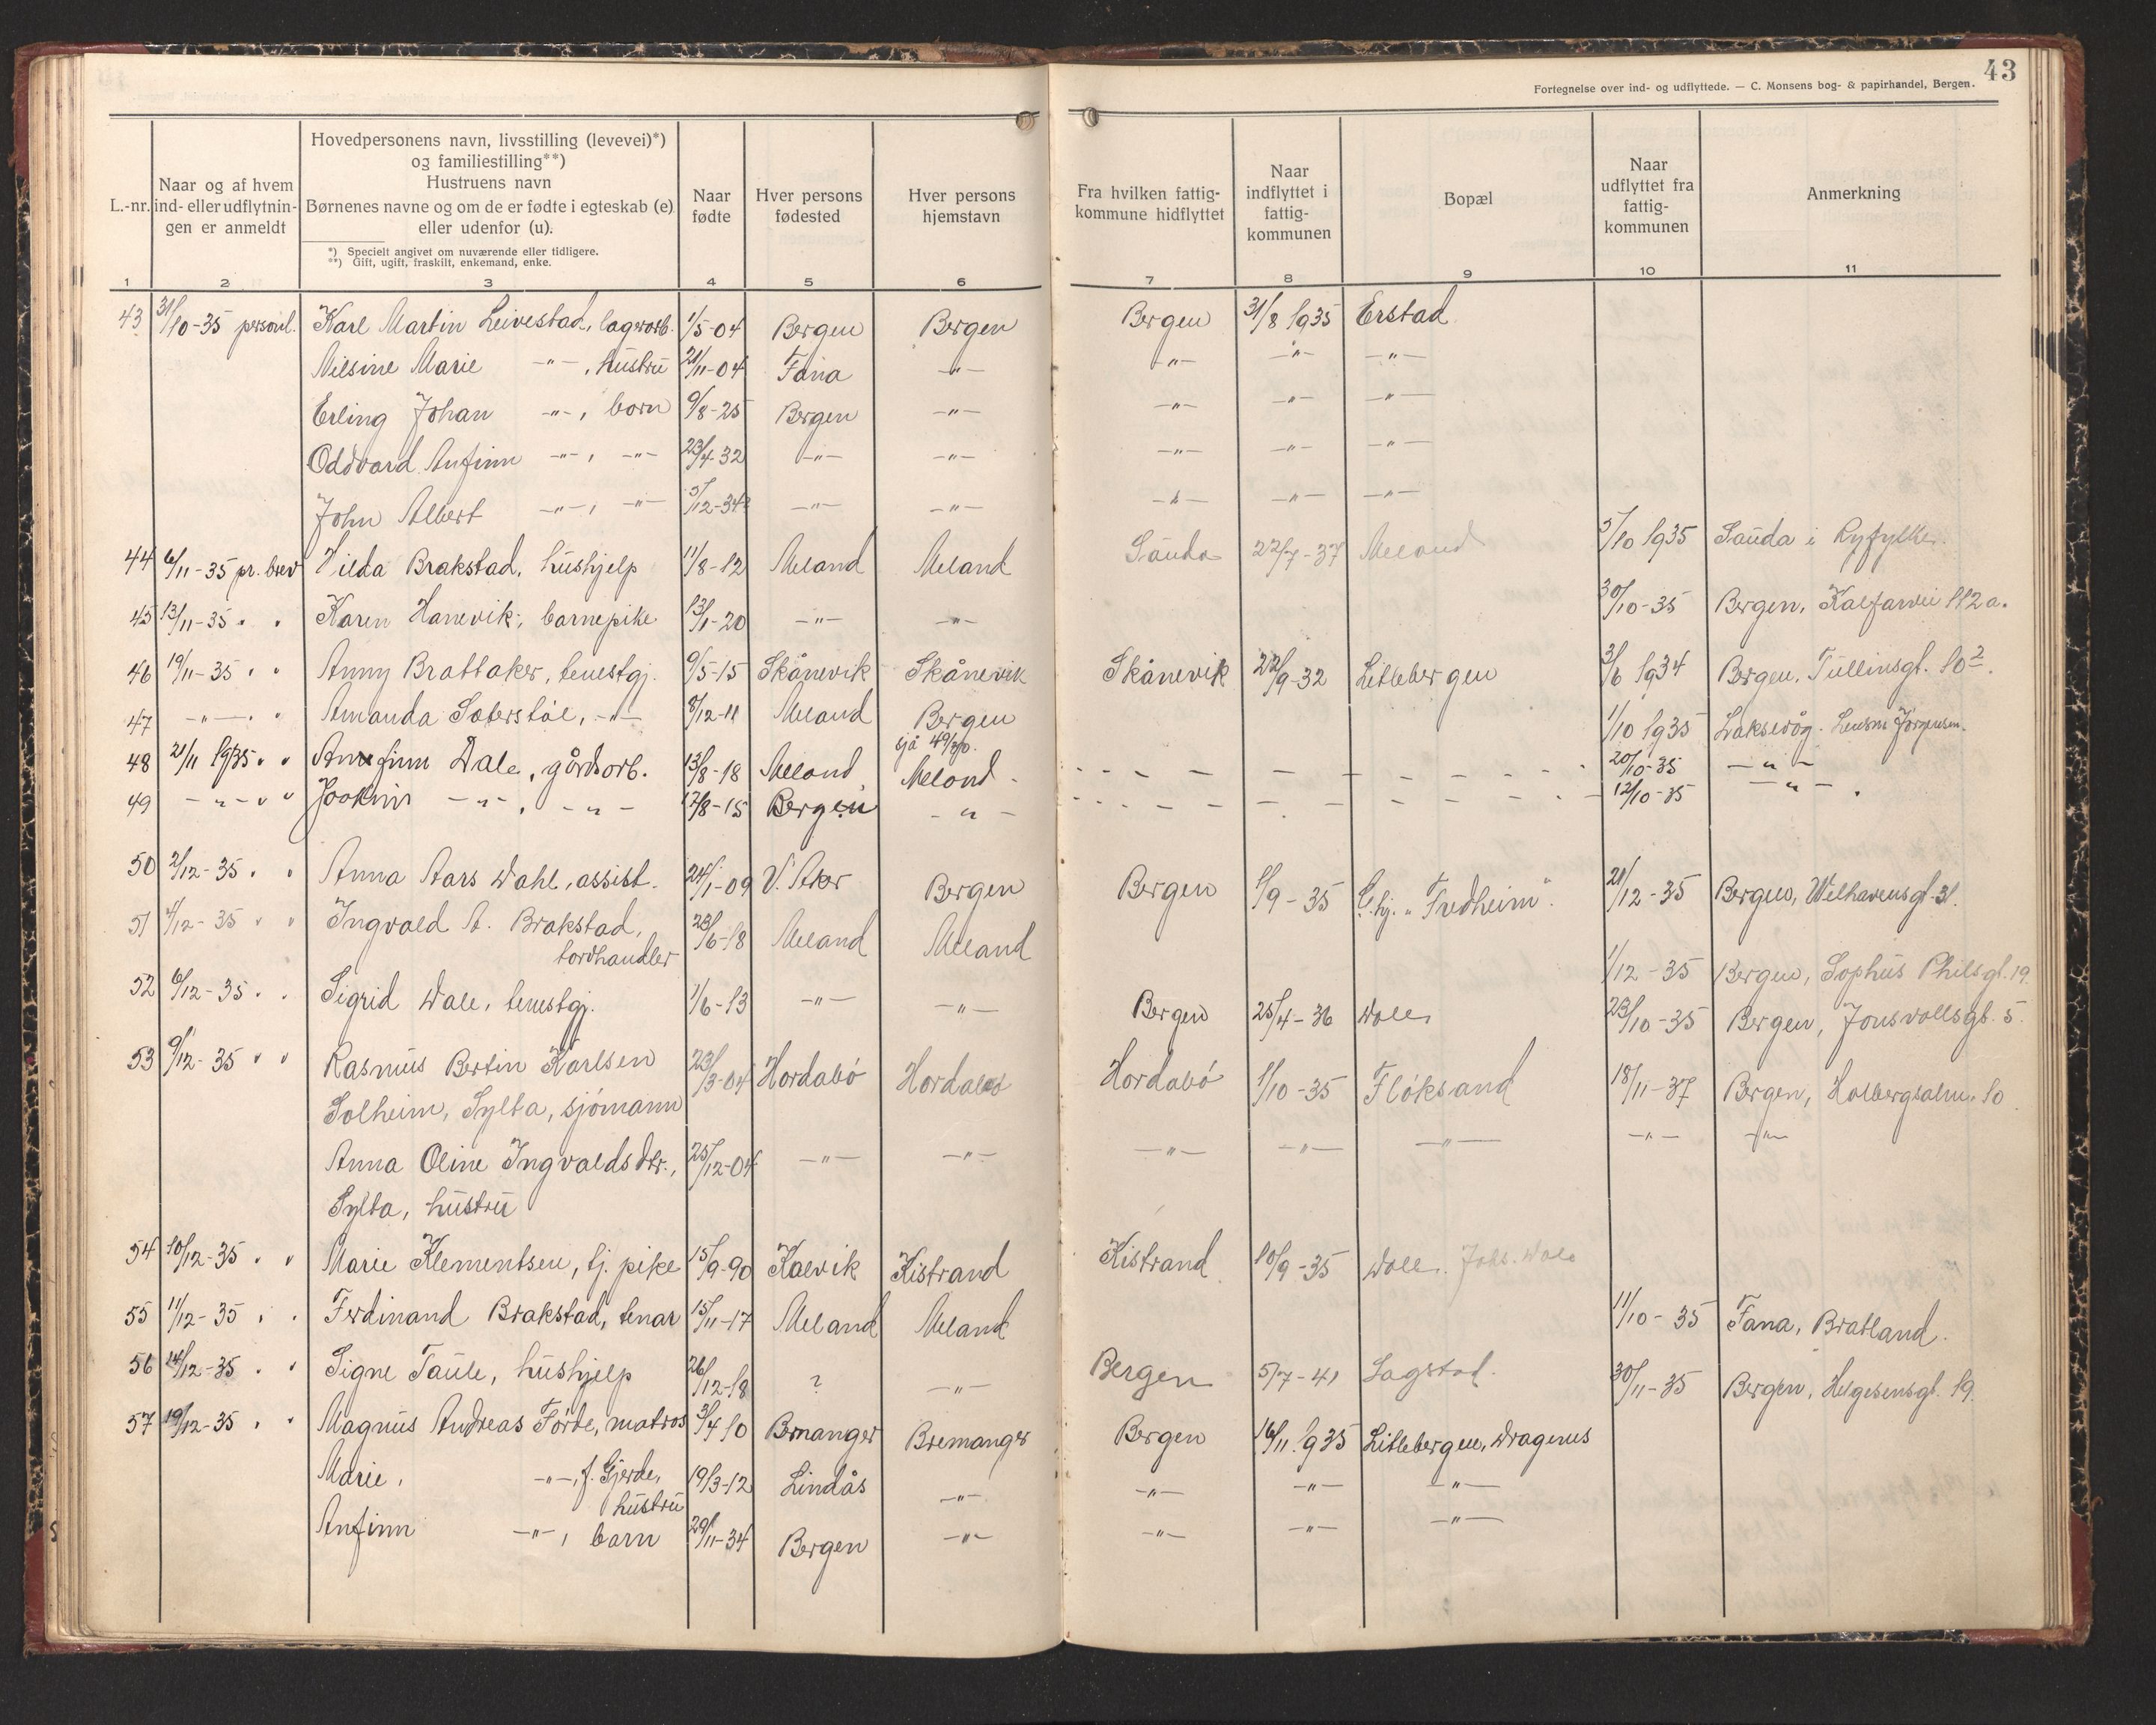 43
Fortegnelse over ind- og udflyttede. — C. Monsens bog- & papirhandel, Bergen.
L.-nr.
Naar og af hvem ind- eller udflytnin- gen er anmeldt
Hovedpersonens navn, livsstilling (levevei)*)
og familiestilling**)
Hustruens navn
Børnenes navne og om de er fødte i egteskab (e)
eller udenfor (u).
*) Specielt angivet om nuværende eller tidligere.
**) Gift, ugift, fraskilt, enkemand, enke.
Naar fødte
Hver persons fødested
Hver persons hjemstavn
Fra hvilken fattig- kommune hidflyttet
Naar indflyttet i fattig- kommunen
Bopæl
Naar udflyttet fra fattig- kommunen
Anmerkning
1 2 3 4 5 6 7 8 9 10 11
43 31/10-35 personl. Karl Martin Leivestad, lagerarb. 1/5-04 Bergen Bergen Bergen 31/8 1935 Erstad
Nilsine Marie -"-, hustru 21/11-04 Fana -"- -"- -"- -"-
Erling Johan -"-, born 9/8-25 Bergen -"- -"- -"- -"-
Oddvard Anfinn -"-, -"- 23/4-32 -"- -"- -"- -"- -"-
John Albert -"-, -"- 5/12-34 -"- -"- -"- -"- -"-
44 6/11-35 pr. brev Hilda Brakstad, hushjelp 11/8-12 Meland Meland Sauda 22/7-37 Meland 5/10 1935 Sauda i Ryfylke.
45 13/11-35 " " Karen Hanevik, barnepike 13/1-20 -"- -"- 30/10-35 Bergen, Kalfarvei 112 a.
46 19/11-35 " " Anny Brattaker, tenestgj. 9/5-15 Skånevik Skånevik Skånevik 22/9-32 Litlebergen 3/6 1934 Bergen, Tullinsgt. 10².
47 -"- " " Amanda Sæterstøl, -"- 8/12-11 Meland Bergen 1/10 1935 Laksevåg. Jørgensen.
sjå 49/30.
48 21/11 1935 " " Annfinn Dale, gårdsarb. 13/8-18 Meland Meland - - - - - 20/10-35 -"-
49 -"- " " Joakim -"-, -"- 17/8-15 Bergen -"- - - - - - 12/10-35 -"-
50 2/12-35 " " Anna Aars Dahl, assist. 24/1-09 V. Aker Bergen Bergen 1/9-35 G.hj. "Fredheim". 21/12-35 Bergen, Welhavensgt. 31.
51 4/12-35 " " Ingvald A. Brakstad,
tordhandler 23/6-18 Meland Meland 1/12-35 Bergen, Sophus Philsgt. 19.
52 6/12-35 " " Sigrid Dale, tenestgj. 1/6-13 -"- -"- Bergen 25/4-36 Dale 23/10-35 Bergen, Jonsvollsgt. 5.
53 9/12-35 " " Rasmus Bertin Karlsen 23/3-04 Hordabø Hordabø Hordabø 1/10-35 Fløksand 18/11-37 Bergen, Holbergsalm. 10
Solheim, Sylta, sjømann
Anna Oline Ingvaldsdtr., 25/12-04 -"- -"- -"- -"- -"- -"- -"-
Sylta, hustru
54 10/12-35 " " Marie Klementsen, tj. pike 15/9-90 Kolvik Kistrand Kistrand 10/9-35 Dale. Johs. Dale
55 11/12-35 " " Ferdinand Brakstad, tenar 15/11-17 Meland Meland 11/10-35 Fana, Bratland.
56 14/12-35 " " Signe Taule, hushjelp 26/12-18 ? -"- Bergen 5/7-41 Sagstad. 30/11-35 Bergen, Helgesensgt. 19.
57 19/12-35 " " Magnus Andreas Førde, matros 3/4 10 Bremanger Bremanger Bergen 16/11.1935 Litlebergen, Dragenes
Marie, -"-, f. Gjerde, 19/3-12 Lindås -"- -"- -"- -"-
hustru
Anfinn -"-, barn 29/11-34 Bergen -"- -"- -"- -"-